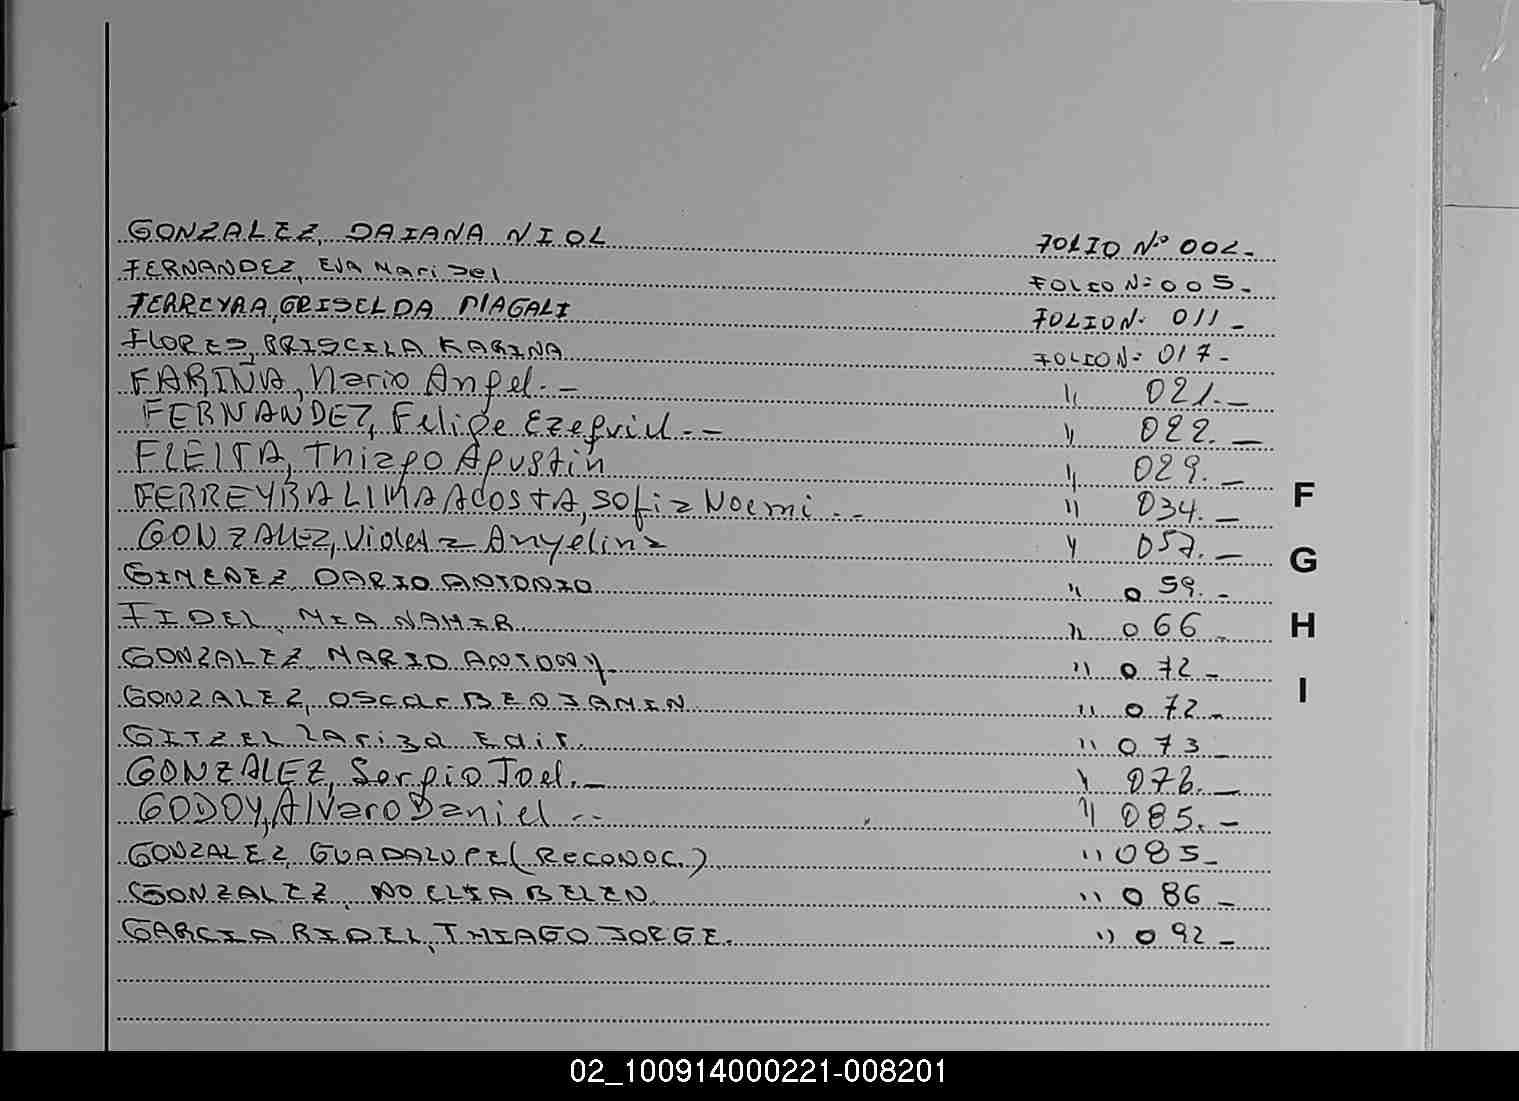 GONZALEZ, DAIANA NIOL FOLIO Nº 002.
FERNANDEZ, EVA Marisel FOLIO N: 005.
FERREYRA, GRISELDA MAGALI FOLIO N. 011 _
FLORES, PRISCILA KARINA FOLIO N: 017 -
FARIÑA, Mario Angel. _ " 021. _
FERNANDEZ, Felipe Ezequiel. -- " 022. _
FLEITA, Thiago Agustin " 029. _
FERREYRA LIMA ACOSTA, Sofia Noemi. -- " 034. _
GONZALEZ, Violeta Anyelina " 057. _
GIMENEZ DARIO ANTONIO " 059. -
FIDEL, MIA NAHIR " 066 _
GONZALEZ MARIO ANTONY. " 072 -
GONZALEZ, OSCAR BENJAMIN " 072 -
GITZEL Lariza Edit. " 073 _
GONZALEZ, Sergio Joel. _ " 076. _
GODOY, Alvaro Daniel -- " 085. -
GONZALEZ, GUADALUPE (RECONOC.) " 085 _
GONZALEZ, NOELIA BELEN " 086 -
GARCIA RIDEL, THIAGO JORGE. " 092 -
F
G
H
I
02_100914000221-008201